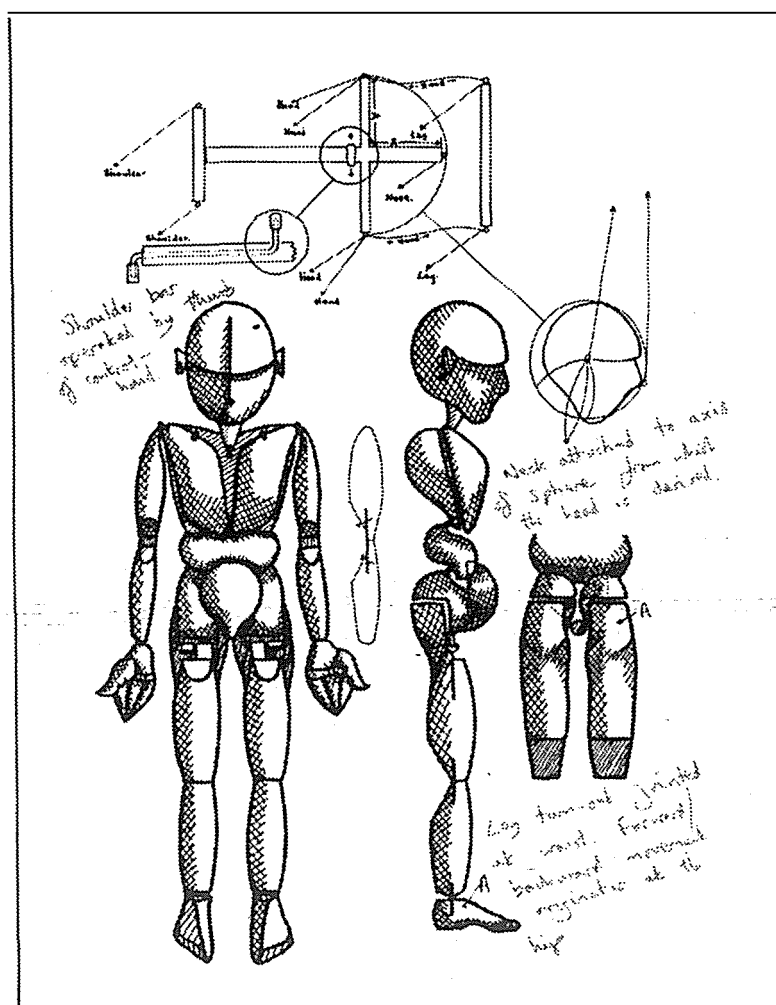 Head
Hand
Hand
Leg
A
A
Nose.
Shoulder
Shoulder.
Hand
Head
Hand
Leg.
Shoulder bar
operated by thumb
of control-
hand.
Neck attached to axis
of sphere from which
the head is derived.
A
Leg turn-out jointed
at waist. Forward/
backward movement
originates at the
hip
A